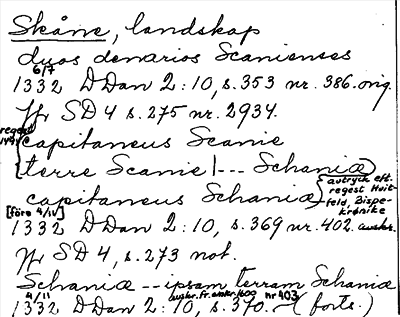 Skåne, landskap
duos denarios Scanienses
6/7
1332 DDan 2:10, s. 353 nr. 386. orig.
Jfr SD 4 s. 275 nr. 2934.
regest
capitaneus Scanie
terre Scanie | --- Schaniæ
capitaneus Schaniæ
avtryck eft. regest Hvit-
feld, Bispe-
krønike
[före 4/IV]
1332 DDan 2:10, s. 369 nr. 402. avskr.
Jfr SD 4, s. 273 not.
Schaniæ -- ipsam terram Schaniæ
4/11 avskr. fr. omkr. 1600 nr 403
1332 DDan 2:10, s. 370. (forts.)